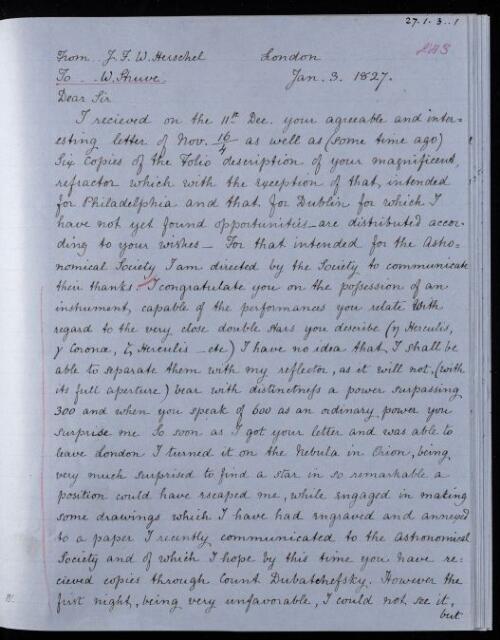 27.1.3..1
From J. F. W. Herschel London
To W. Struve. Jan. 3. 1827.
Dear Sir
I recieved on the 11th Dec. your agreeable and inter=
esting letter of Nov. 16/4 as well as (some time ago)
Six Copies of the Folio description of your magnificent
refractor which with the exception of that, intended
for Philadelphia and that for Dublin for which I
have not yet found opportunities_ are distributed accor-
ding to your wishes_ For that intended for the Astro=
nomical Society I am directed by the Society to communicate
their thanks. I congratulate you on the possession of an
instrument, capable of the performances you relate With
regard to the very close double stars you describe (η Herculis,
γ Coronæ, ζ Herculis _ etc) I have no idea that, I shall be
able to separate them with my reflector, as it will not, (with
its full aperture) bear with distinctness a power surpassing
300 and when you speak of 600 as an ordinary power you
surprise me So soon as I got your letter and was able to
leave London I turned it on the Nebula in Orion, being
very much surprised to find a star in so remarkable a
position could have escaped me, while engaged in making
some drawings which I have had engraved and annexed
to a paper I recently communicated to the Astronomical
Society and of which I hope by this time you have re=
cieved copies through Count Dubatchefsky. However the
first night, being very unfavorable, I could not see it,
but